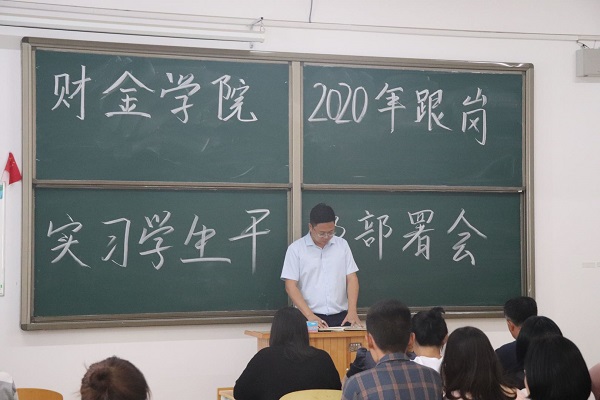 财金学院 2020年跟岗
实习学生干部署会